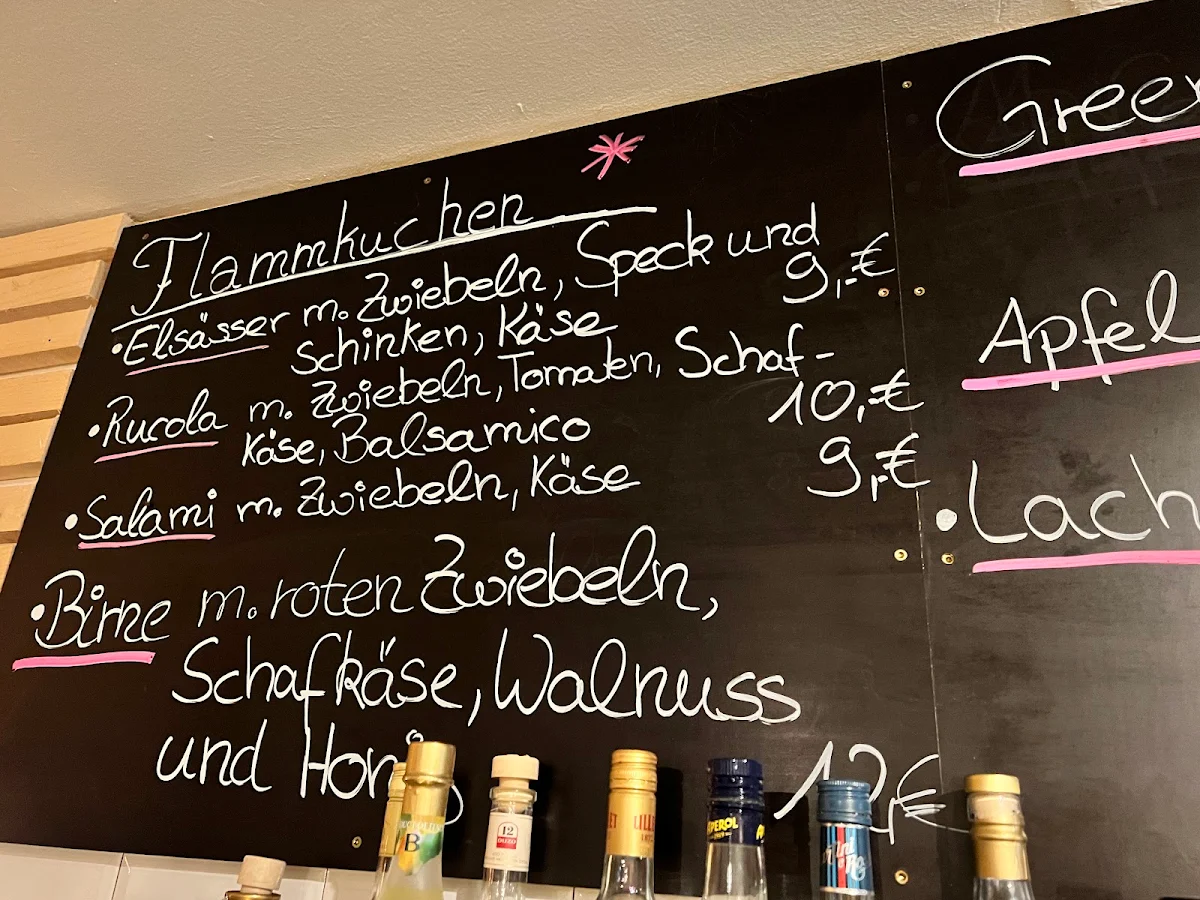 Flammkuchen
• Elsässer m. Zwiebeln, Speck und
Schinken, Käse 9,-€
• Rucola m. Zwiebeln, Tomaten, Schaf-
käse, Balsamico 10,-€
• Salami m. Zwiebeln, Käse 9,-€
• Birne m. roten Zwiebeln,
Schafkäse, Walnuss
und Honig
Green
Apfel
• Lach
12